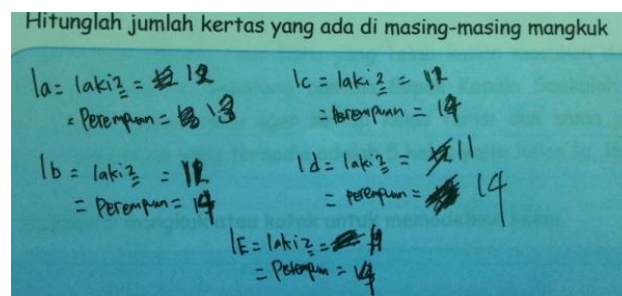 Hitunglah jumlah kertas yang ada di masing-masing mangkuk
1a = laki2 = 12
= Perempuan = 13
1c = laki2 = 12
= Perempuan = 14
1b = laki2 = 12
= Perempuan = 14
1d = laki2 = 11
= Perempuan = 14
1E = laki2 = 11
= Perempuan = 14